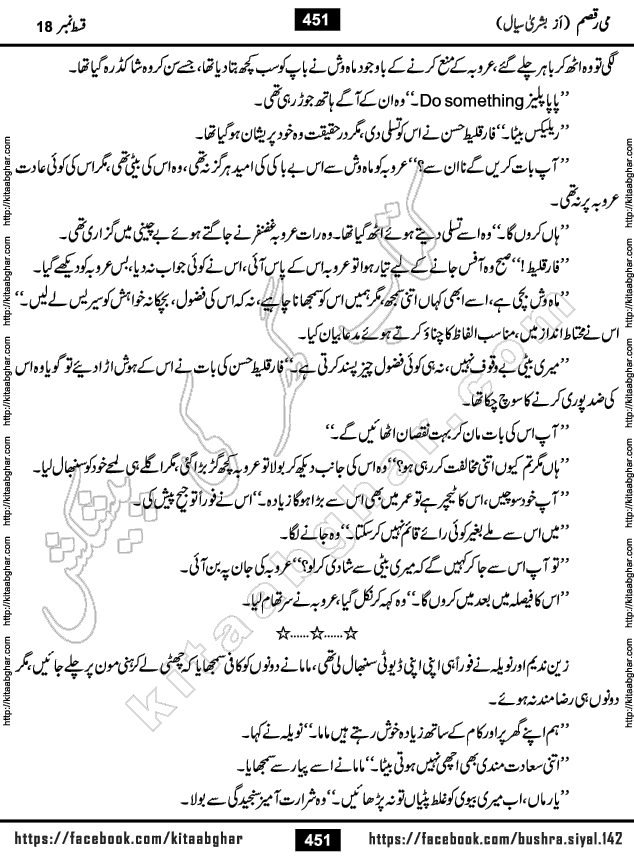 می رقصم (از بشریٰ سیال)
451
قسط نمبر 18
لگی تو وہ اٹھ کر باہر چلے گئے، عروبہ کے منع کرنے کے باوجود ماہ وش نے باپ کو سب کچھ بتا دیا تھا، جسے سن کر وہ شاکڈ رہ گیا تھا۔
’’پاپا پلیز Do something۔‘‘ وہ ان کے آگے ہاتھ جوڑ رہی تھی۔
’’ریلیکس بیٹا۔‘‘ فارقلیط حسن نے اس کو تسلی دی، مگر درحقیقت وہ خود پریشان ہو گیا تھا۔
’’آپ بات کریں گے نا ان سے؟‘‘ عروبہ کو ماہ وش سے اس بے باکی کی امید ہرگز نہ تھی، وہ اس کی بیٹی تھی، مگر اس کی کوئی عادت
عروبہ پر نہ تھی۔
’’ہاں کروں گا۔‘‘ وہ اسے تسلی دیتے ہوئے اٹھ گیا تھا۔ وہ رات عروبہ غضنفر نے جاگتے ہوئے بے چینی میں گزاری تھی۔
’’فارقلیط!‘‘ صبح وہ آفس جانے کے لیے تیار ہوا تو عروبہ اس کے پاس آئی، اس نے کوئی جواب نہ دیا، بس عروبہ کو دیکھے گیا۔
’’ماہ وش بچی ہے، اسے ابھی کہاں اتنی سمجھ، مگر ہمیں اس کو سمجھانا چاہیے، نہ کہ اس کی فضول، بچکانہ خواہش کو سیریس لے لیں۔‘‘
اس نے محتاط انداز میں، مناسب الفاظ کا چناؤ کرتے ہوئے مدعا بیان کیا۔
’’میری بیٹی بے وقوف نہیں، نہ ہی کوئی فضول چیز پسند کرتی ہے۔‘‘ فارقلیط حسن کی بات نے اس کے ہوش اڑا دیئے تو گویا وہ اس
کی ضد پوری کرنے کا سوچ چکا تھا۔
’’آپ اس کی بات مان کر بہت نقصان اٹھائیں گے۔‘‘
’’ہاں مگر تم کیوں اتنی مخالفت کر رہی ہو؟‘‘ وہ اس کی جانب دیکھ کر بولا تو عروبہ کچھ گڑبڑا گئی، مگر اگلے ہی لمحے خود کو سنبھال لیا۔
’’آپ خود سوچیں، اس کا ٹیچر ہے تو عمر میں بھی اس سے بڑا ہو گا زیادہ۔‘‘ اس نے فوراً توجیح پیش کی۔
’’میں اس سے ملے بغیر کوئی رائے قائم نہیں کر سکتا۔‘‘ وہ جانے لگا۔
’’تو آپ اس سے جا کر کہیں گے کہ میری بیٹی سے شادی کر لو؟‘‘ عروبہ کی جان پہ بن آئی۔
’’اس کا فیصلہ میں بعد میں کروں گا۔‘‘ وہ کہہ کر نکل گیا، عروبہ نے سر تھام لیا۔
☆......☆......☆
زین ندیم اور نویلہ نے فوراً ہی اپنی اپنی ڈیوٹی سنبھال لی تھی، ماما نے دونوں کو کافی سمجھایا کہ چھٹی لے کر ہنی مون پر چلے جائیں، مگر
دونوں ہی رضامند نہ ہوئے۔
’’ہم اپنے گھر پر اور کام کے ساتھ زیادہ خوش رہتے ہیں ماما۔‘‘ نویلہ نے کہا۔
’’اتنی سعادت مندی بھی اچھی نہیں ہوتی بیٹا۔‘‘ ماما نے اسے پیار سے سمجھایا۔
’’یار ماں، اب میری بیوی کو غلط پٹیاں تو نہ پڑھائیں۔‘‘ وہ شرارت آمیز سنجیدگی سے بولا۔
http://kitaabghar.com http://kitaabghar.com http://kitaabghar.com http://kitaabghar.com http://kitaabghar.com http://kitaabghar.com
http://kitaabghar.com http://kitaabghar.com http://kitaabghar.com http://kitaabghar.com http://kitaabghar.com http://kitaabghar.com
کتاب گھر کی پیشکش
kitaabghar.com
https://facebook.com/kitaabghar
451
https://facebook.com/bushra.siyal.142